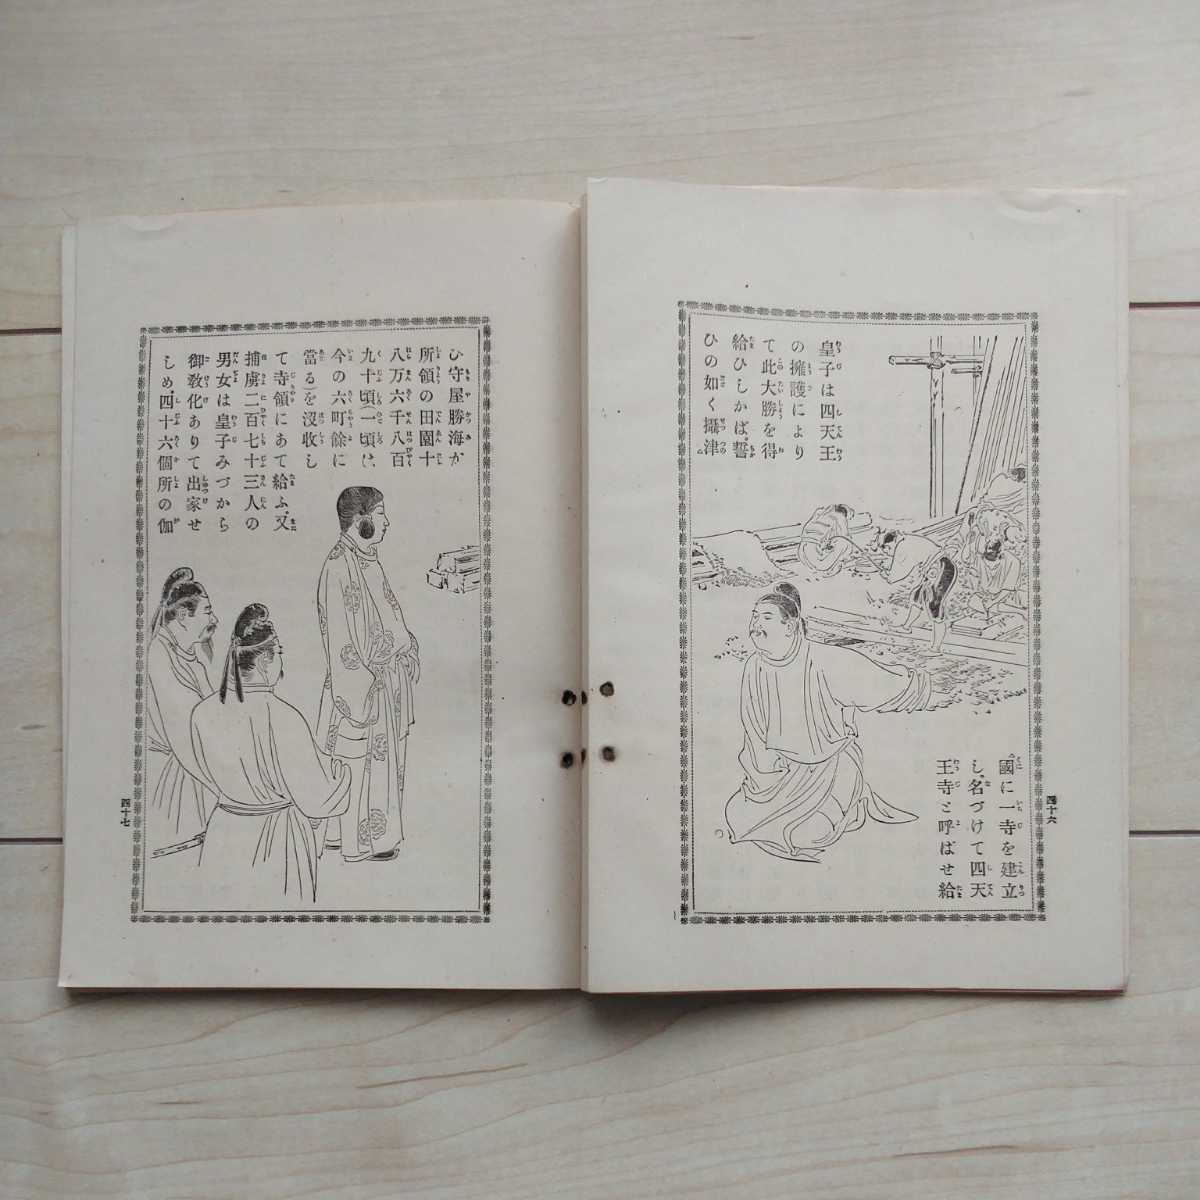 皇子は四天王
の擁護により
て此大勝を得
給ひしかば、誓
ひの如く攝津
國に一寺を建立
し、名づけて四天
王寺と呼ばせ給
四十六
ひ守屋勝海が
所領の田園十
八万六千八百
九十頃(一頃は、
今の六町餘に
當る)を沒收し
て寺領にあて給ふ、又
捕虜二百七十三人の
男女は皇子みづから
御敎化ありて出家せ
しめ、四十六個所の伽
四十七